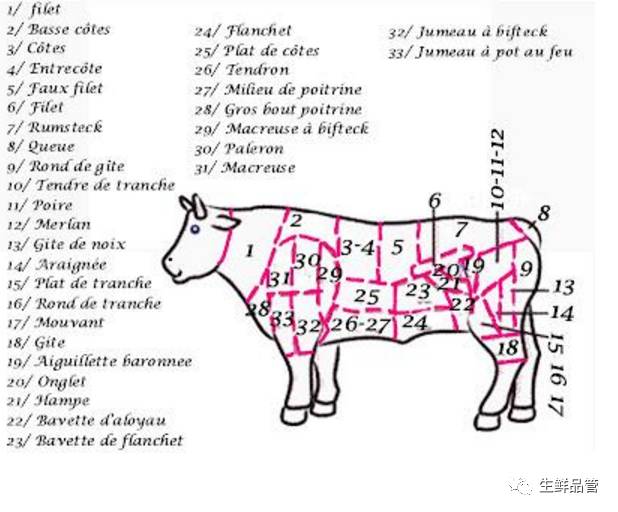 1/ filet
2/ Basse côtes
3/ Côtes
4/ Entrecôte
5/ Faux filet
6/ Filet
7/ Rumsteck
8/ Queue
9/ Rond de gîte
10/ Tendre de tranche
11/ Poire
12/ Merlan
13/ Gite de noix
14/ Araignée
15/ Plat de tranche
16/ Rond de tranche
17/ Mouvant
18/ Gîte
19/ Aiguillette baronnee
20/ Onglet
21/ Hampe
22/ Bavette d'aloyau
23/ Bavette de flanchet
24/ Flanchet
25/ Plat de côtes
26/ Tendron
27/ Milieu de poitrine
28/ Gros bout poitrine
29/ Macreuse à bifteck
30/ Paleron
31/ Macreuse
32/ Jumeau à bifteck
33/ Jumeau à pot au feu
10-11-12
6
7
8
2
1
30
3-4
5
31
29
20
19
9
21
25
23
22
13
28
33
32
26-27
24
14
18
15 16 17
生鲜品管